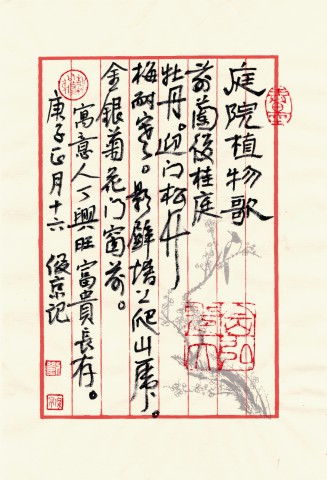 庭院植物歌
前蘭後桂庭
牡丹。迎门松竹
梅耐寒。影壁墙上爬山虎。
金銀菊花门窗前。
寓意人丁興旺富貴長存。
庚子正月十六 京记